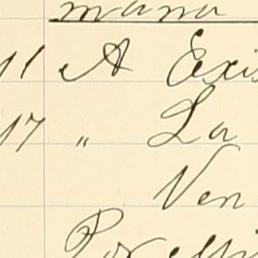 mana
11 A Exis
17 " La
Ven